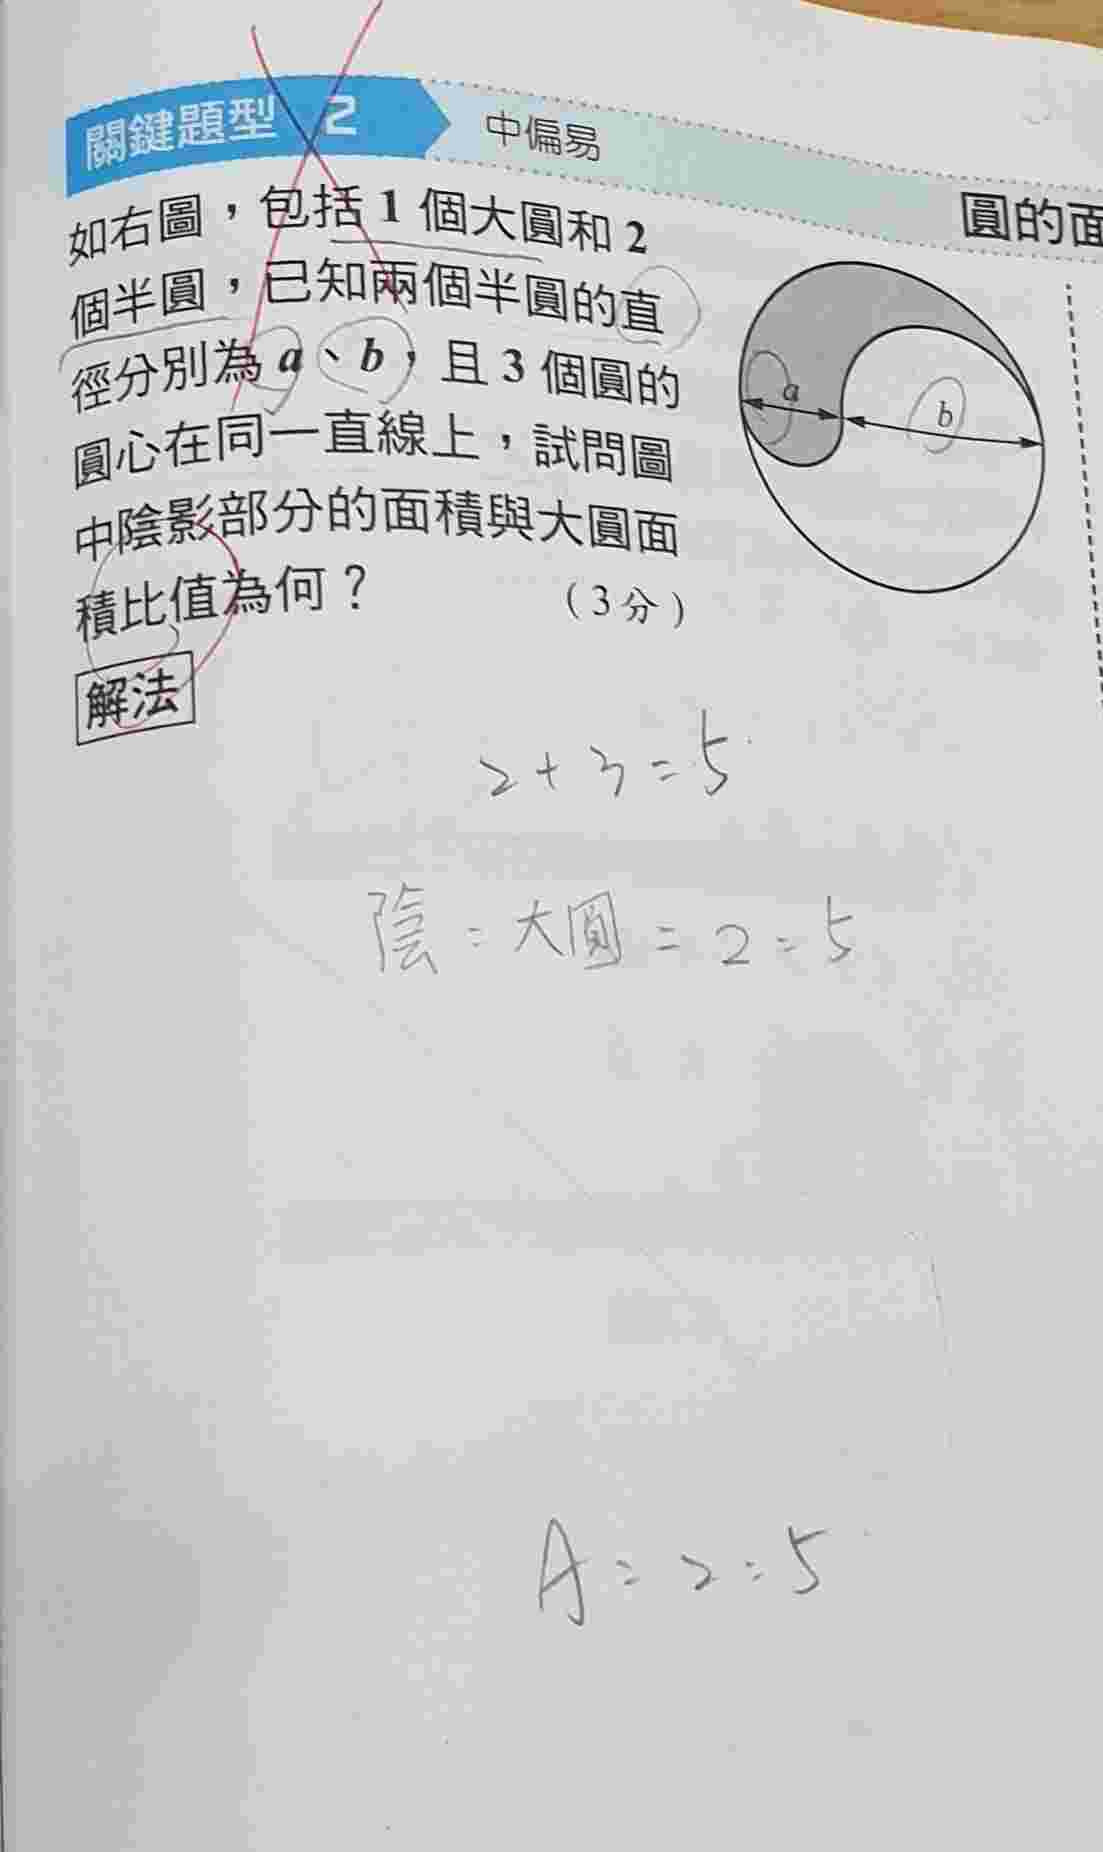 關鍵題型 2
中偏易
圓的面
如右圖，包括 1 個大圓和 2
個半圓，已知兩個半圓的直
徑分別為 a、b，且 3 個圓的
圓心在同一直線上，試問圖
中陰影部分的面積與大圓面
積比值為何？ （3 分）
a
b
解法
2+3=5
陰：大圓=2:5
A：2:5